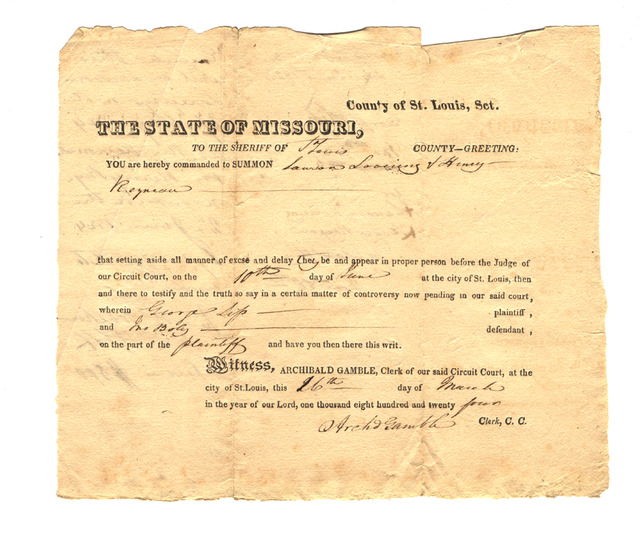 County of St. Louis, Sct.
THE STATE OF MISSOURI,
TO THE SHERIFF OF St Louis COUNTY—GREETING:
YOU are hereby commanded to SUMMON & Henry
that setting aside all manner of excse and delay they be and appear in proper person before the Judge of
our Circuit Court, on the 10th day of June at the city of St. Louis, then
and there to testify and the truth so say in a certain matter of controversy now pending in our said court,
wherein George plaintiff,
and Jno defendant,
on the part of the plaintiff and have you then there this writ.
Witness, ARCHIBALD GAMBLE, Clerk of our said Circuit Court, at the
city of St. Louis, this 26th day of March
in the year of our Lord, one thousand eight hundred and twenty four
Archd Gamble Clerk, C. C.